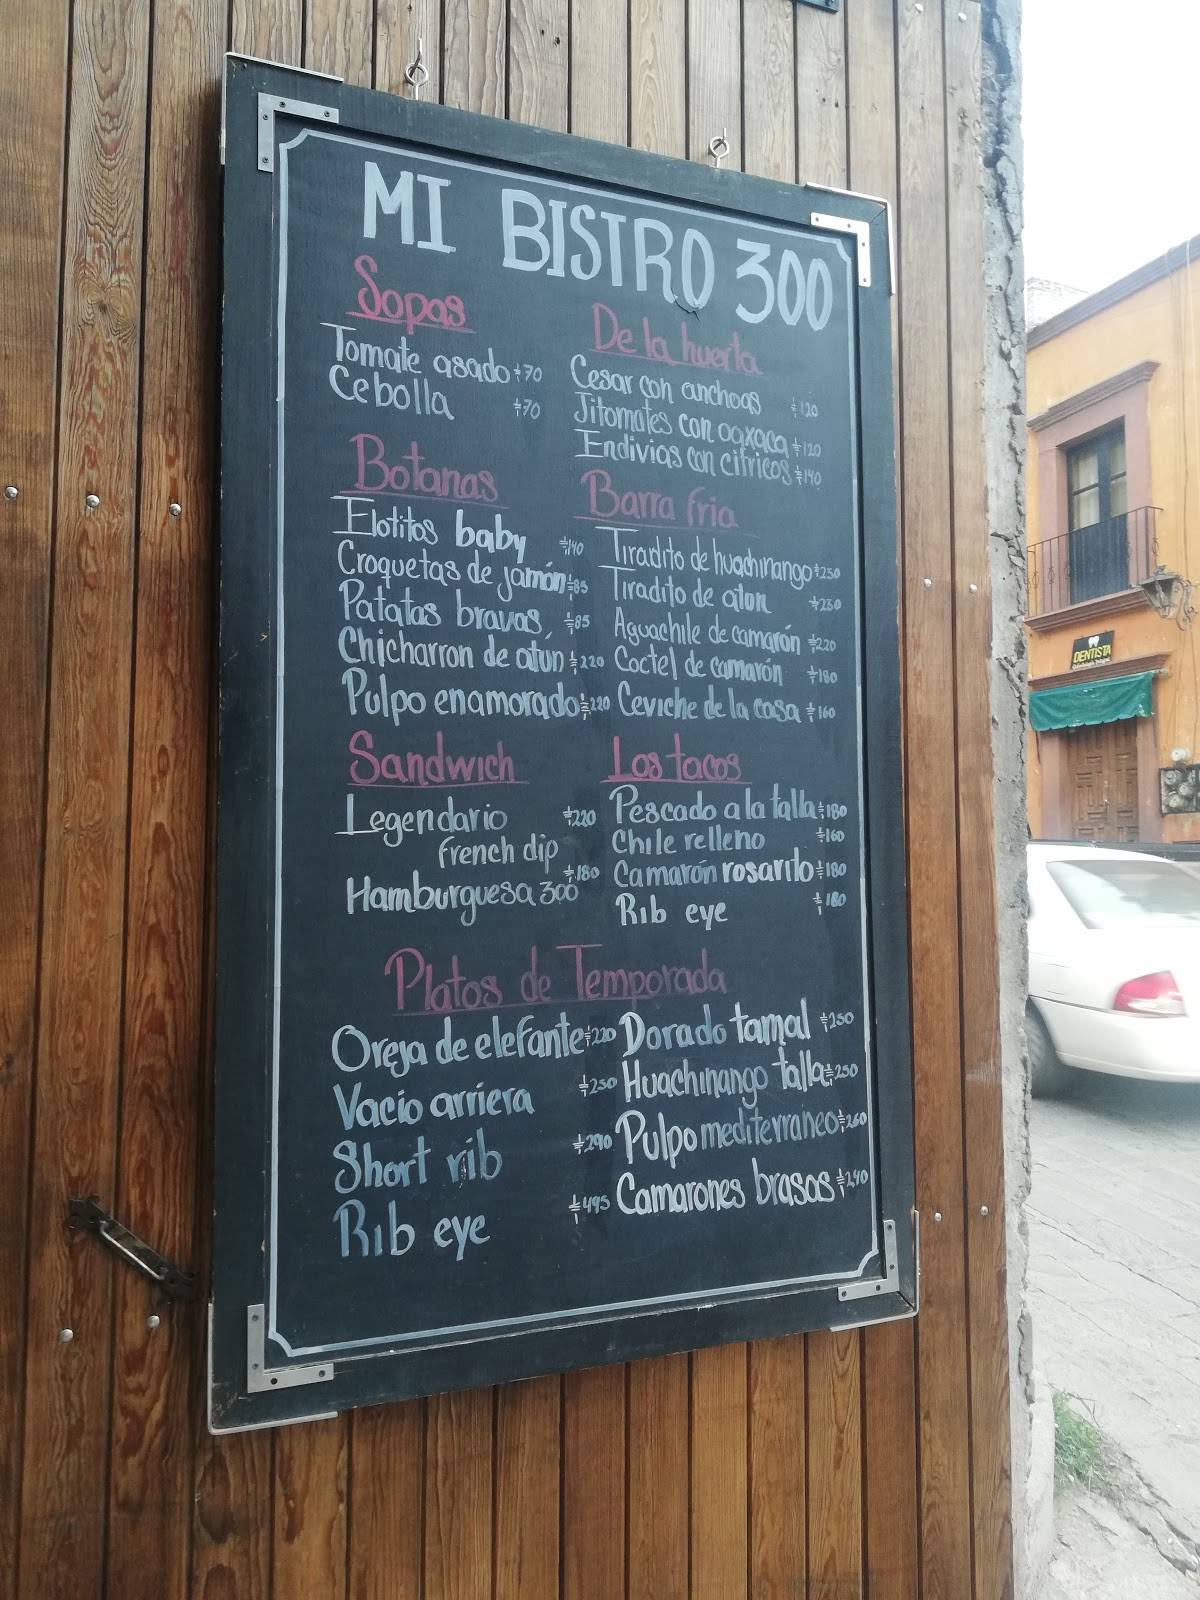 MI BISTRO 300
Sopas
Tomate asado $70
Cebolla $70
Botanas
Elotitos baby $140
Croquetas de jamón $85
Patatas bravas $85
Chicharron de atún $220
Pulpo enamorado $220
Sandwich
Legendario $220
french dip
Hamburguesa 300 $180
De la huerta
Cesar con anchoas $120
Jitomates con oaxaca $120
Endivias con citricos $140
Barra fria
Tiradito de huachinango $250
Tiradito de atun $230
Aguachile de camarón $220
Coctel de camarón $180
Ceviche de la casa $160
Los tacos
Pescado a la talla $180
Chile relleno $160
Camarón rosarito $180
Rib eye $180
Platos de Temporada
Oreja de elefante $220
Vacio arriera $250
Short rib $290
Rib eye $495
Dorado tamal $250
Huachinango talla $250
Pulpo mediterraneo $260
Camarones brasas $240
DENTISTA